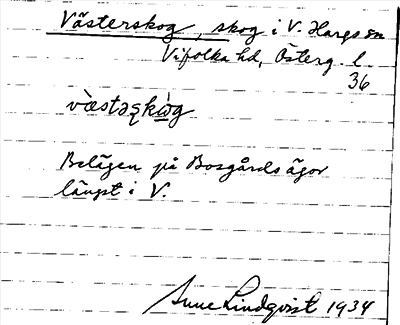 Västerskog, skog i V. Hargs sn
Vifolka hd, Österg. l.
36
væ̀stəʂkɷ̀g
Belägen på Bosgårds ägor
längst i V.
Sune Lindqvist 1934